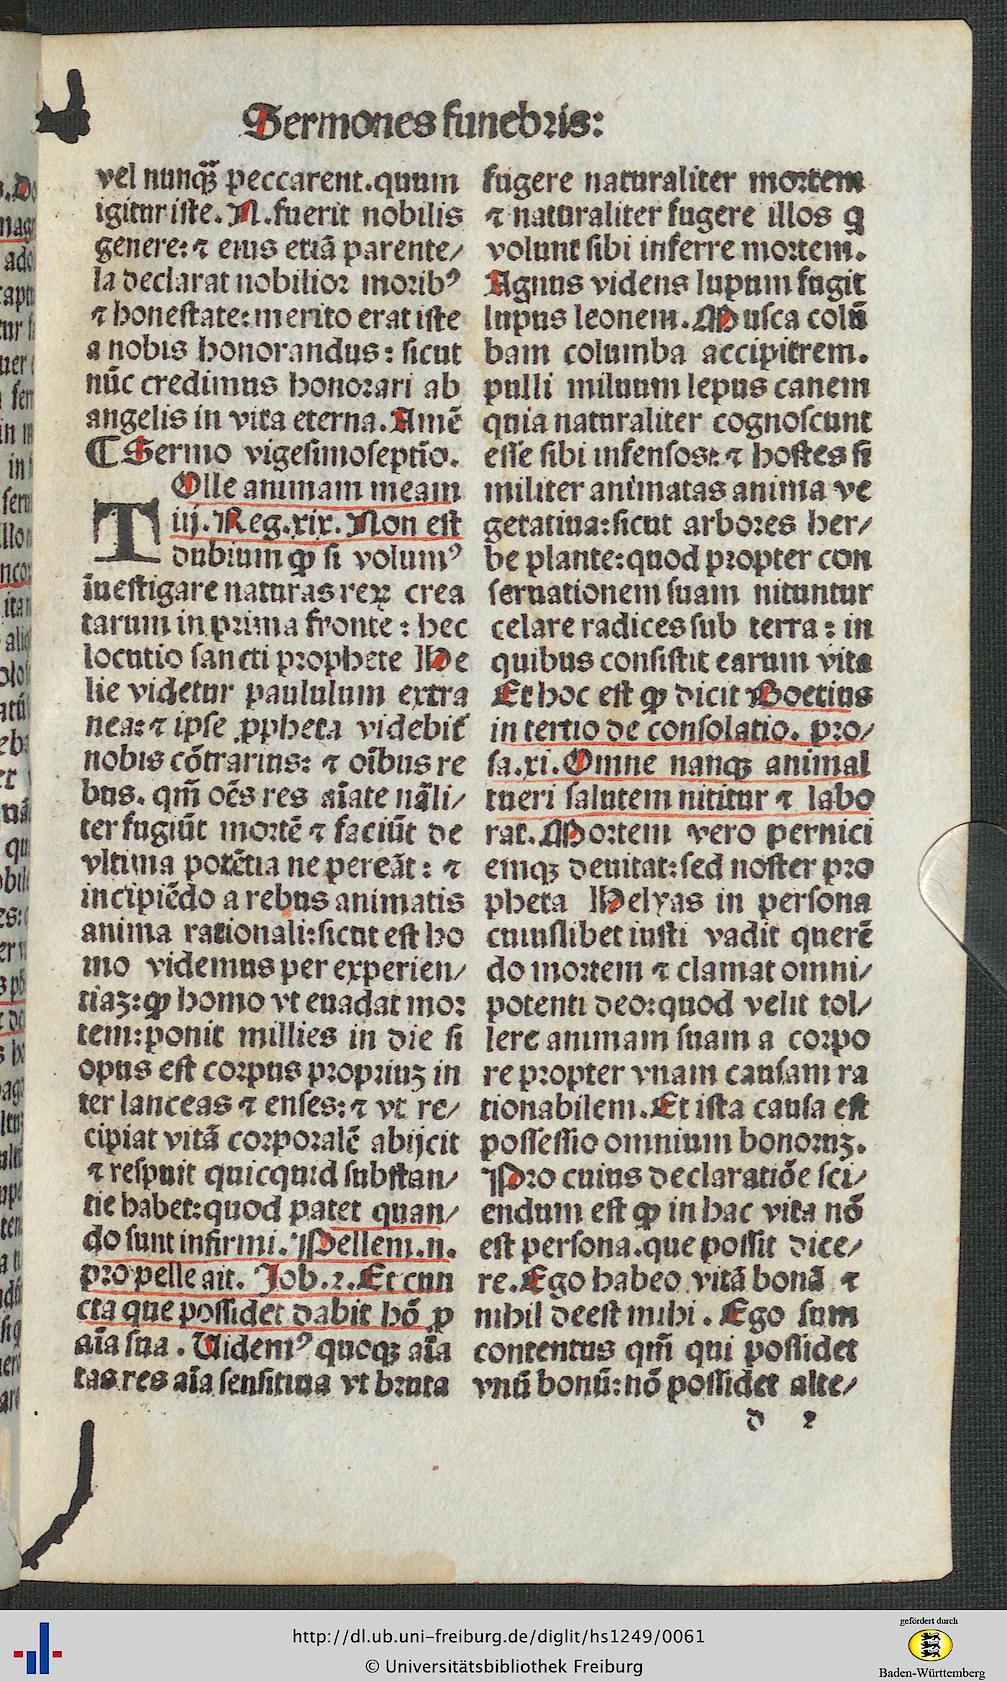 Sermones funebris:
vel nunqꝫ̃ peccarent.quum
igitur iste. N.fuerit nobilis
genere: ⁊ eius etiã parente/
la declarat nobilior moribꝰ
⁊ honestate:merito erat iste
a nobis honorandus: sicut
nũc credimus honorari ab
angelis in vita eterna.Amẽ
¶ Sermo vigesimoseptĩo.
TOlle animam meam
iij.Reg.xix.Non est
dubium ꝙ si volumꝰ
ĩuestigare naturas reꝝ crea
tarum in prima fronte: hec
locutio sancti prophete He
lie videtur paululum extra
nea:⁊ ipse ꝓpheta videbit̃
nobis cõtrarius: ⁊ oĩbus re
bus. qm̃ oẽs res aĩate nãli/
ter fugiũt mortẽ ⁊ faciũt de
vltima potẽtia ne pereãt: ⁊
incipiẽdo a rebus animatis
anima rationali:sicut est ho
mo videmus per experien/
tiaꝫ:ꝙ homo vt euadat mor
tem:ponit millies in die si
opus est corpus propriuꝫ in
ter lanceas ⁊ enses:⁊ vt re/
cipiat vitã corporalẽ abijcit
⁊ respuit quicquid substan/
tie habet:quod patet quan/
do sunt infirmi.Pellem.n.
pro pelle ait. Job.2.Et cun
cta que possidet dabit hõ ꝓ
aĩa sua. Uidemꝰ quoqꝫ aĩa
tas res aĩa sensitiua vt bruta
fugere naturaliter mortem
⁊ naturaliter fugere illos ꝗ
volunt sibi inferre mortem.
Agnus videns lupum fugit
lupus leonem.Musca colũ
bam columba accipitrem.
pulli miluum lepus canem
quia naturaliter cognoscunt
esse sibi infensos:⁊ hostes si
militer animatas anima ve
getatiua:sicut arbores her/
be plante:quod propter con
seruationem suam nituntur
celare radices sub terra: in
quibus consistit earum vita
Et hoc est ꝙ dicit Boetius
in tertio de consolatio. pro/
sa.xi.Omne nanqꝫ animal
tueri salutem nititur ⁊ labo
rat.Mortem vero pernici
emqꝫ deuitat:sed noster pro
pheta Helyas in persona
cuiuslibet iusti vadit querẽ
do mortem ⁊ clamat omni/
potenti deo:quod velit tol/
lere animam suam a corpo
re propter vnam causam ra
tionabilem.Et ista causa est
possessio omnium bonoruꝫ.
Pro cuius declaratiõe sci/
endum est ꝙ in hac vita nõ
est persona.que possit dice/
re.Ego habeo vitã bonã ⁊
nihil deest mihi. Ego sum
contentus qm̃ qui possidet
vnũ bonũ:nõ possidet alte/
d 2
http://dl.ub.uni-freiburg.de/diglit/hs1249/0061
© Universitätsbibliothek Freiburg
gefördert durch
Baden-Württemberg